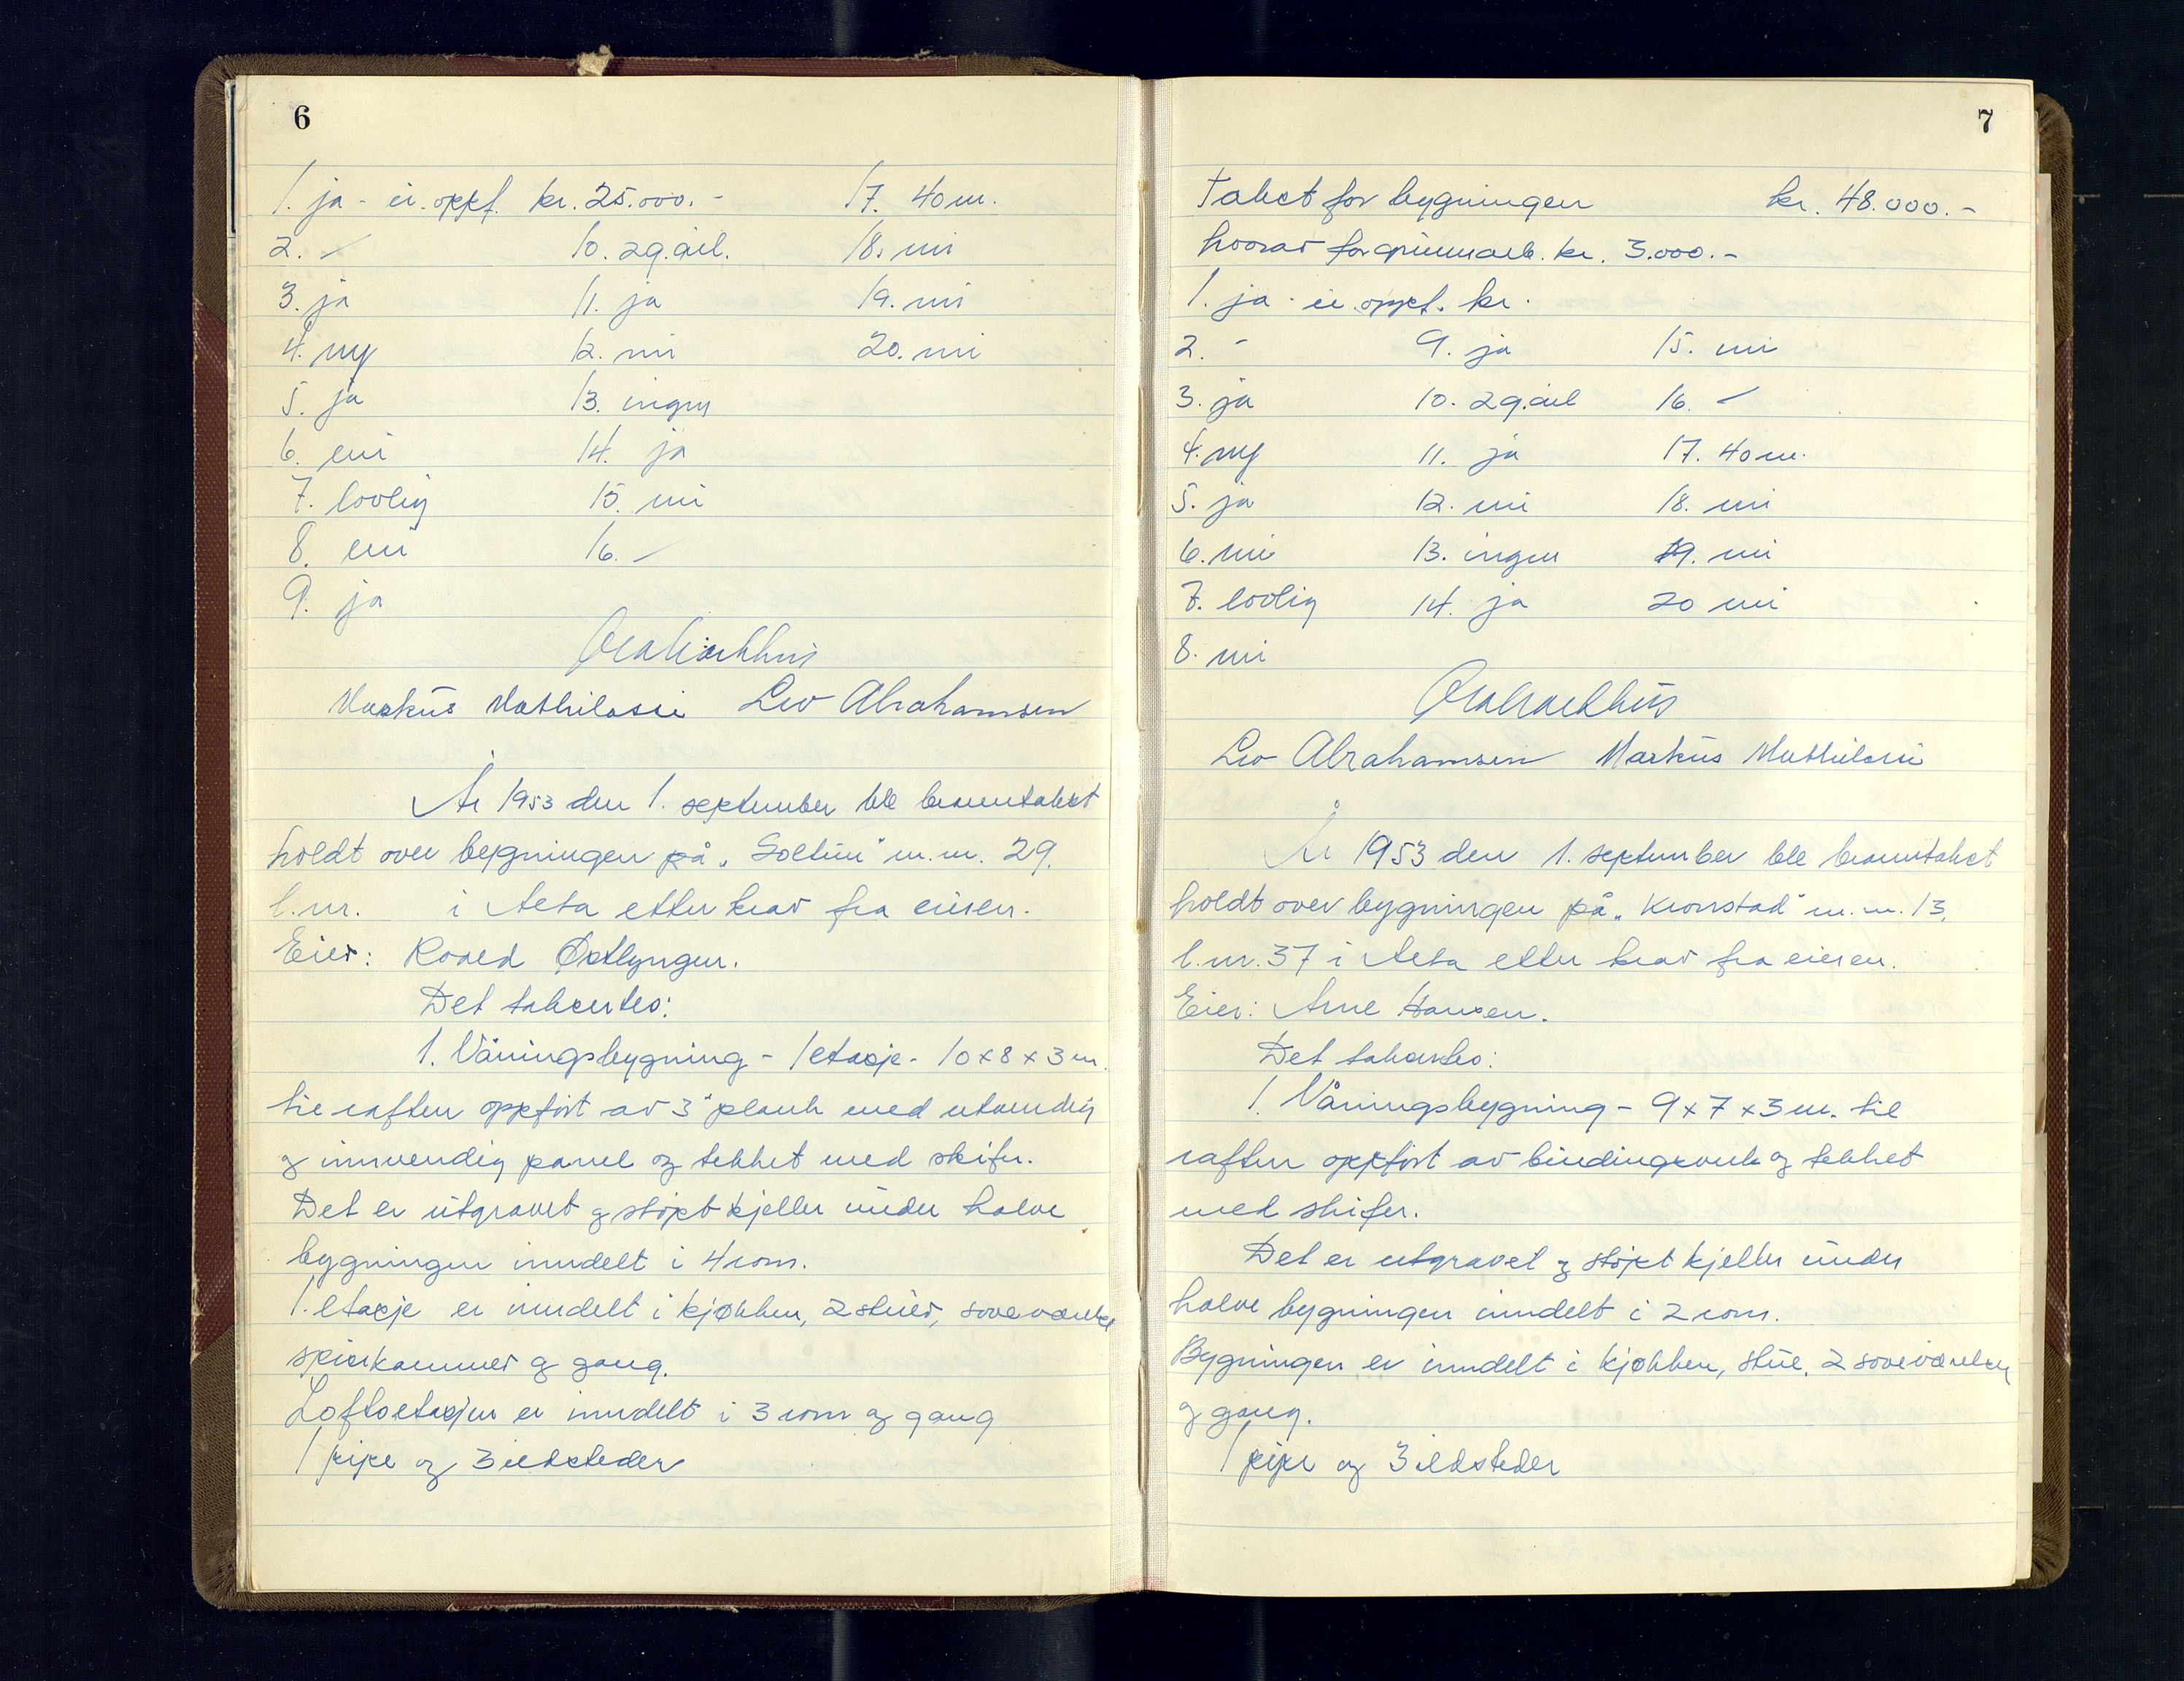 6
1. ja - ei. oppf. kr. 25.000.- 17. 40 m.
2. - 10. zg. ael. 18. nei
3. ja 11. ja 19. nei
4. ny 12. nei 20. nei
5. ja 13. ingen
6. nei 14. ja
7. lovlig 15. nei
8. nei 16. -
9. ja
Markus Mathilassi Leo Abrahamsen
År 1953 den 1. september ble branntakst
holdt over bygningen på „Soltun" m.nr. 29.
b.nr. i Alta etter krav fra eieren.
Eier: Roald Østlyngen.
Det takertes:
1. Våningsbygning - 1 etasje - 10 x 8 x 3 m
til raften oppført av 3" plank med utvendig
og innvendig panel og tekket med skifer.
Det er utgravet og støpt kjeller under halve
bygningen inndelt i 4 rom.
1. etasje er inndelt i kjøkken, 2 stuer, soveværelse
spiskammer og gang.
Loftsetasjen er inndelt i 3 rom og gang
1 pipe og 3 ildsteder
7
Takst for bygningen kr. 48.000.-
hvorav for grunnarb. kr. 3.000.-
1. ja - ei oppf. kr.
2. - 9. ja 15. nei
3. ja 10. zg. ael 16. -
4. ny 11. ja 17. 40 m.
5. ja 12. nei 18. nei
6. nei 13. ingen 19. nei
7. lovlig 14. ja 20 nei
8. nei
Leo Abrahamsen Markus Mathilassi
År 1953 den 1. september ble branntakst
holdt over bygningen på „Kronstad" m.nr. 13,
b.nr. 37 i Alta etter krav fra eieren.
Eier: Arne Hansen.
Det takertes:
1. Våningsbygning - 9 x 7 x 3 m. til
raften oppført av bindingsverk og tekket
med skifer.
Det er utgravet og støpt kjeller under
halve bygningen inndelt i 2 rom.
Bygningen er inndelt i kjøkken, stue, 2 soveværelser
og gang.
1 pipe og 3 ildsteder